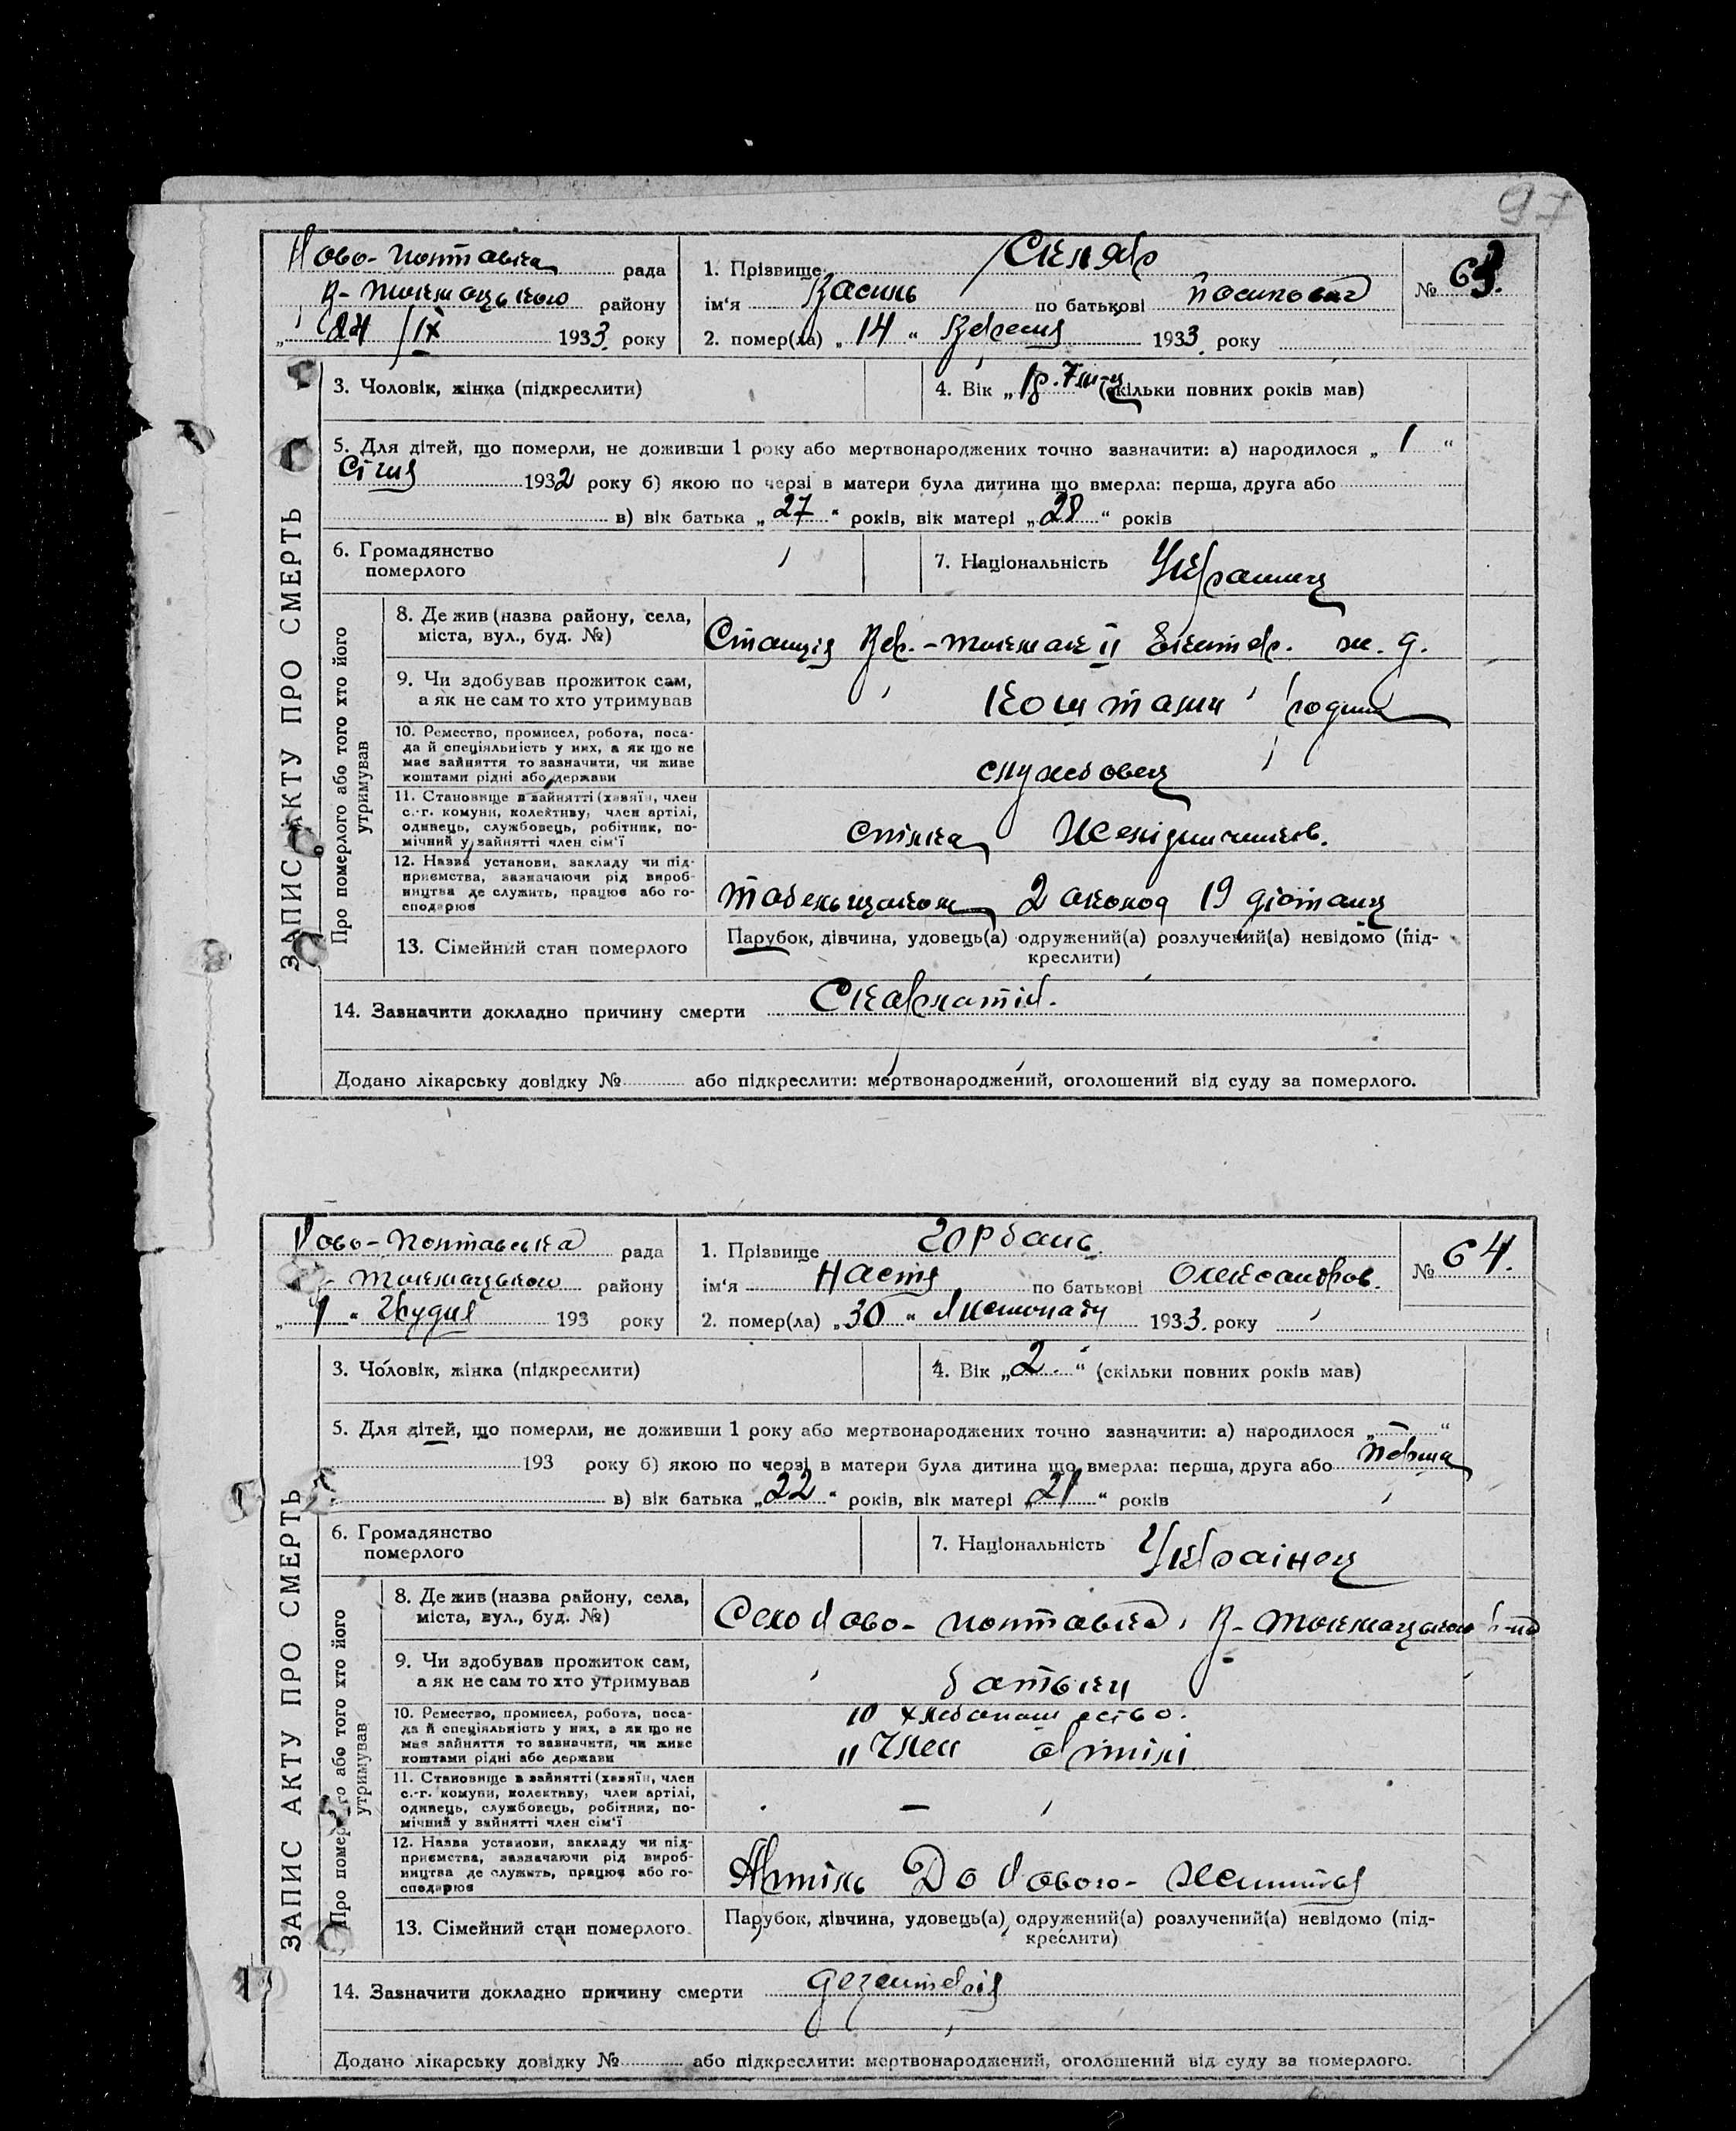 97
Ново-Полтавська рада
В-Токмацького району
„ 24 / IX 1933 року
1. Прізвище Скляр
ім‘я Василь по батькові Йосипович
2. помер(ла) „ 14 “ Вересня 1933 року
№ 63.
ЗАПИС АКТУ ПРО СМЕРТЬ
3. Чоловік, жінка (підкреслити)
4. Вік „ 1р. 7 м-ц (скільки повних років мав)
5. Для дітей, що померли, не доживши 1 року або мертвонароджених точно зазначити: а) народилося „ 1 “
Січня 1932 року б) якою по черзі в матери була дитина що вмерла: перша, друга або
в) вік батька „ 27 “ років, вік матері „ 28 “ років
6. Громадянство
померлого
7. Національність Украинец
Про померлого або того хто його
утримував
8. Де жив (назва району, села,
міста, вул., буд. №)
Станція Вел.-Токмак II Екатер. ж. д.
9. Чи здобував прожиток сам,
а як не сам то хто утримував
Коштами родини
10. Ремество, промисел, робота, поса-
да й спеціяльність у них, а як що не
має зайняття то зазначити, чи живе
коштами рідні або держави
службовец
11. Становище в зайнятті (хазяїн, член
с.-г. комуни, колективу, член артілі,
одинець, службовець, робітник, по-
мічний у зайнятті член сім‘ї
спілка
12. Назва установи, закладу чи під-
приємства, зазначаючи рід вироб-
ництва де служить, працює або го-
сподарює
Табельщиком 2 околод 19
13. Сімейний стан померлого
Парубок, дівчина, удовець(а) одружений(а) розлучений(а) невідомо (під-
креслити)
14. Зазначити докладно причину смерти Скарлатіна.
Додано лікарську довідку № або підкреслити: мертвонароджений, оголошений від суду за померлого.
Ново-Полтавська рада
В-Токмацького району
„ 1 “ Грудня 193 року
1. Прізвище Горбань
ім‘я Настя по батькові Олександров.
2. помер(ла) „ 30 “ Листопаду 1933. року
№ 64.
ЗАПИС АКТУ ПРО СМЕРТЬ
3. Чоловік, жінка (підкреслити)
4. Вік „ 2 “ (скільки повних років мав)
5. Для дітей, що померли, не доживши 1 року або мертвонароджених точно зазначити: а) народилося „ – “
193 року б) якою по черзі в матери була дитина що вмерла: перша, друга або перша
в) вік батька „ 22 “ років, вік матері „ 21 “ років
6. Громадянство
померлого
7. Національність Українец
Про померлого або того хто його
утримував
8. Де жив (назва району, села,
міста, вул., буд. №)
Село Ново-Полтавка, В-Токмацького р-на
9. Чи здобував прожиток сам,
а як не сам то хто утримував
батьки
10. Ремество, промисел, робота, поса-
да й спеціяльність у них, а як що не
має зайняття то зазначити, чи живе
коштами рідні або держави
10 хлебопашество.
11 Член артілі
11. Становище в зайнятті (хазяїн, член
с.-г. комуни, колективу, член артілі,
одинець, службовець, робітник, по-
мічний у зайнятті член сім‘ї
–
12. Назва установи, закладу чи під-
приємства, зазначаючи рід вироб-
ництва де служить, працює або го-
сподарює
Артіль До Нового Життя
13. Сімейний стан померлого.
Парубок, дівчина, удовець(а) одружений(а) розлучений(а) невідомо (під-
креслити)
14. Зазначити докладно причину смерти дезентерія
Додано лікарську довідку № або підкреслити: мертвонароджений, оголошений від суду за померлого.